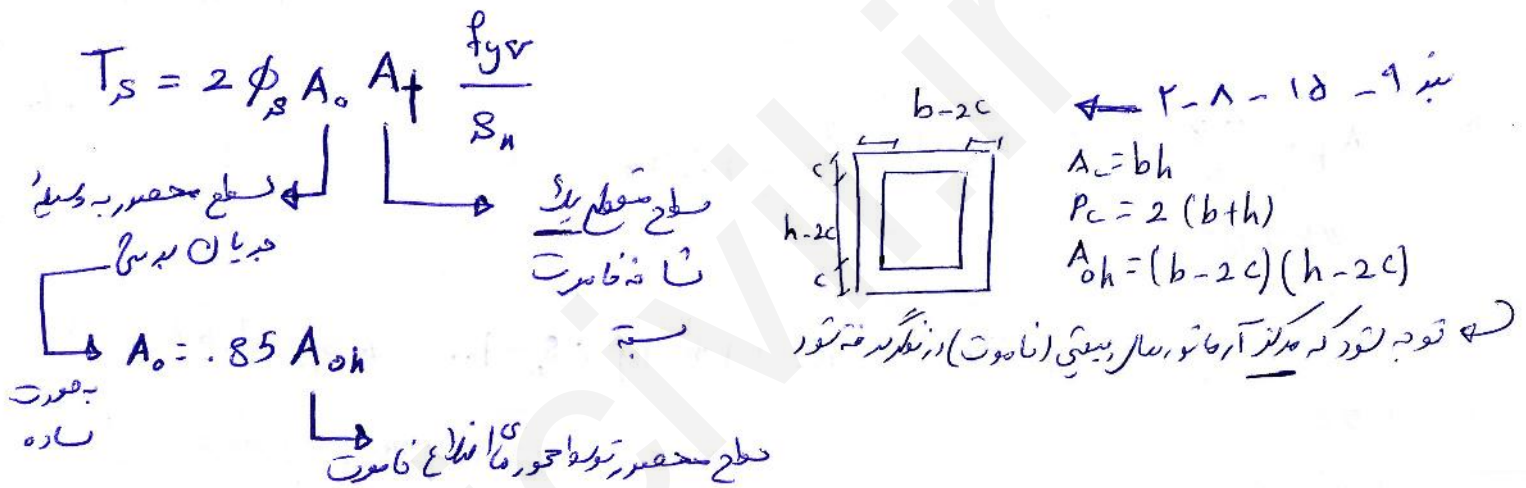 T_s = 2 φ_s A_o A_t f_yv / S_n
سطح محصور به وسیلهٔ
جریان برشی
سطح مقطع یک
شاخه خاموت
بسته
A_o = .85 A_oh
به صورت
ساده
سطح محصور توسط محورهای اضلاع خاموت
بند ۹-۱۵-۸-۲ ←
b-2c
c
h-2c
c
A_c = bh
P_c = 2 (b+h)
A_oh = (b-2c)(h-2c)
توجه شود که مرکز آرماتورهای پیچشی (خاموت) در نظر گرفته شود
civil.ir